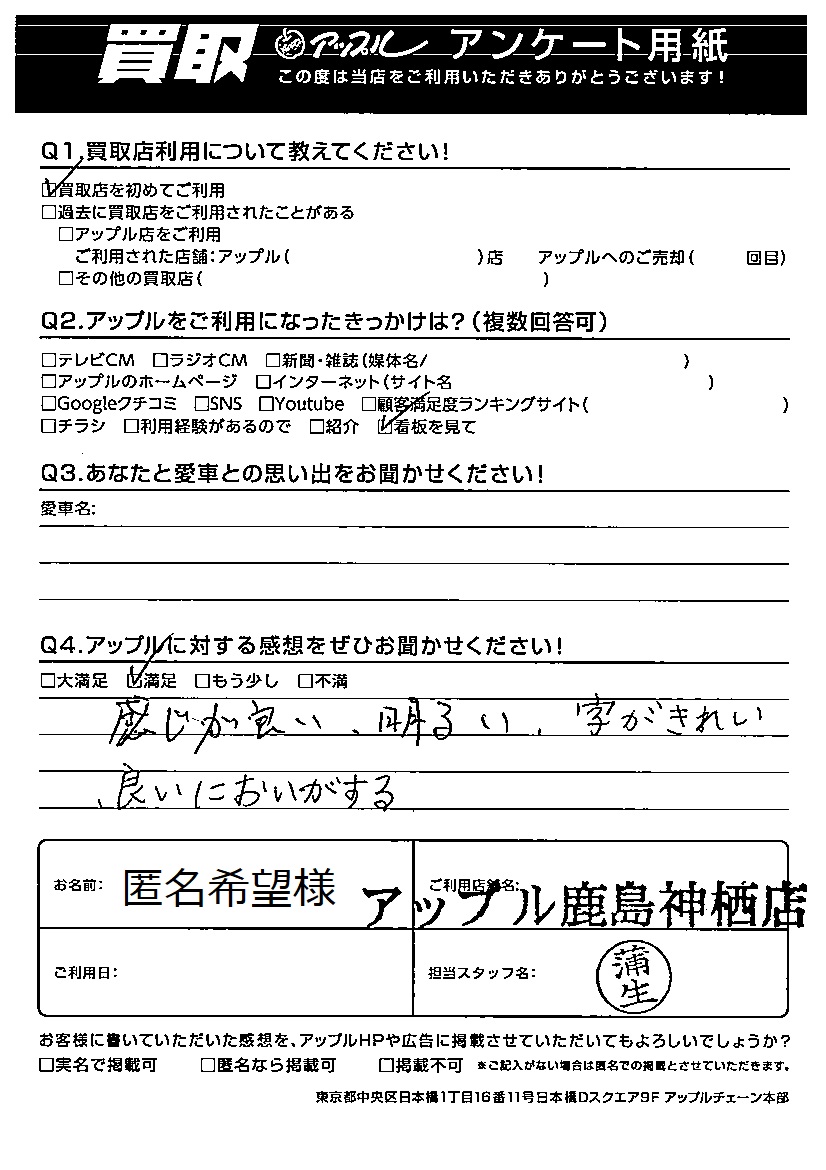 買取 アップル アンケート用紙
この度は当店をご利用いただきありがとうございます!
Q1.買取店利用について教えてください!
☑買取店を初めてご利用
□過去に買取店をご利用されたことがある
□アップル店をご利用
ご利用された店舗:アップル( )店 アップルへのご売却( 回目)
□その他の買取店( )
Q2.アップルをご利用になったきっかけは?(複数回答可)
□テレビCM □ラジオCM □新聞・雑誌(媒体名/ )
□アップルのホームページ □インターネット(サイト名 )
□Googleクチコミ □SNS □Youtube □顧客満足度ランキングサイト( )
□チラシ □利用経験があるので □紹介 ☑看板を見て
Q3.あなたと愛車との思い出をお聞かせください!
愛車名:
Q4.アップルに対する感想をぜひお聞かせください!
□大満足 ☑満足 □もう少し □不満
感じが良い、明るい、字がきれい
、良いにおいがする
お名前: 匿名希望様 ご利用店舗名: アップル鹿島神栖店
ご利用日: 担当スタッフ名: 蒲生
お客様に書いていただいた感想を、アップルHPや広告に掲載させていただいてもよろしいでしょうか?
□実名で掲載可 □匿名なら掲載可 □掲載不可 ※ご記入がない場合は匿名での掲載とさせていただきます。
東京都中央区日本橋1丁目16番11号日本橋Dスクエア9F アップルチェーン本部